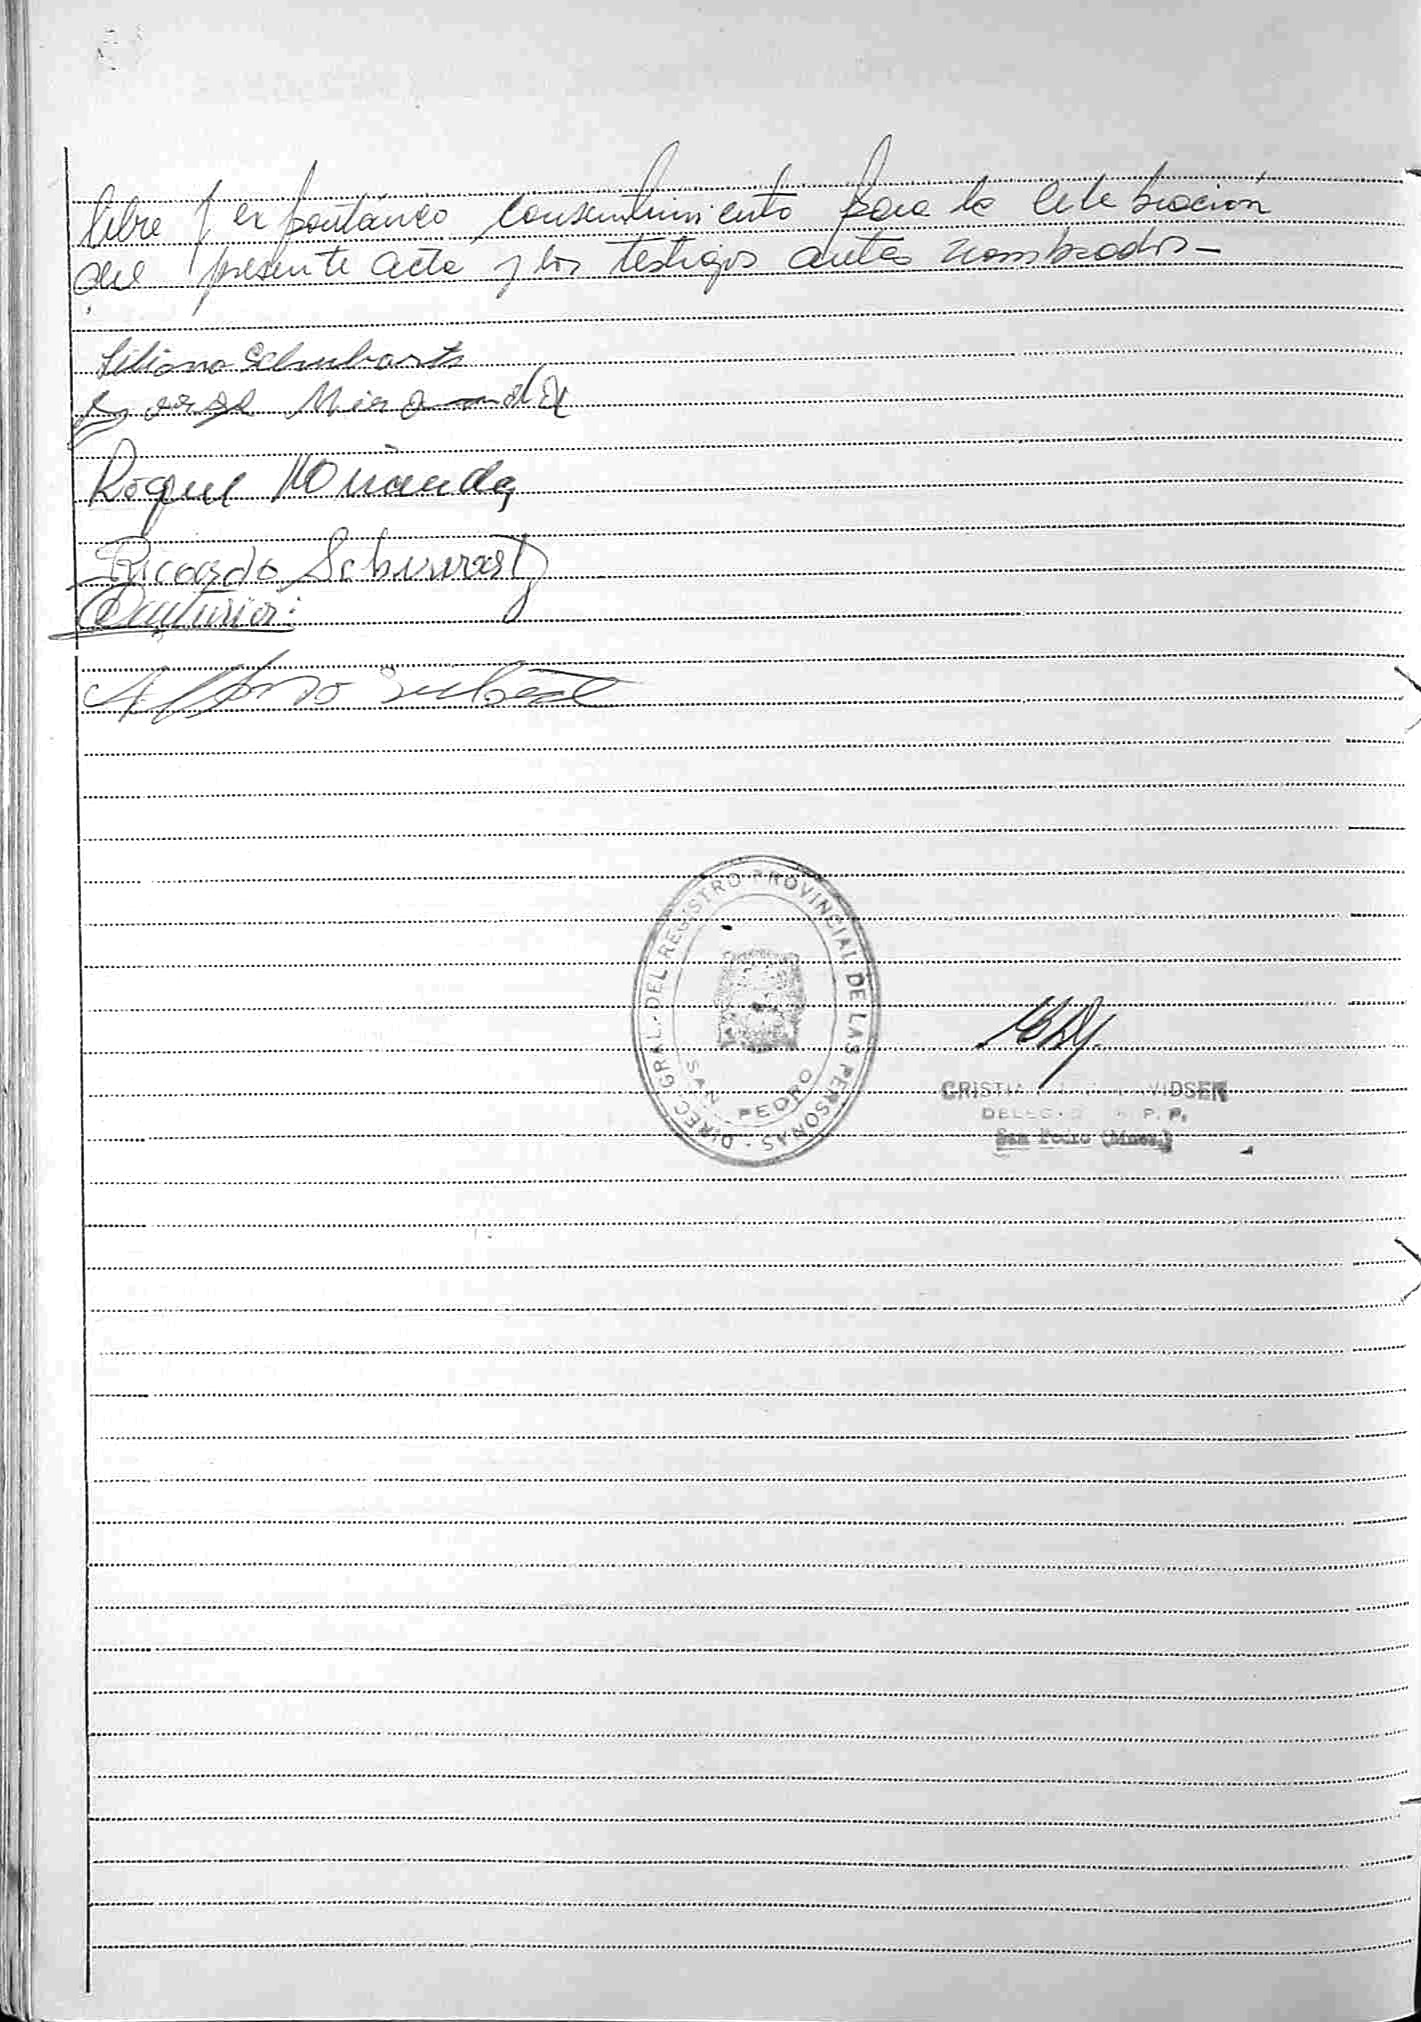 libre y espontáneo consentimiento para la celebración
del presente acta y los testigos antes nombrados -
Liliana Schubarts
Jorge Miranda
Roque Miranda
Ricardo Schuvarst
DIREC. GRAL. DEL REGISTRO PROVINCIAL DE LAS PERSONAS -
SAN PEDRO
San Pedro (Mnes.)